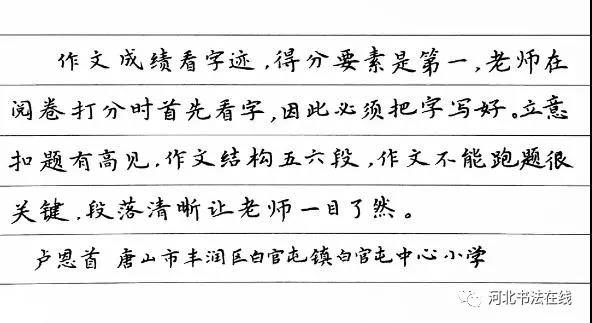 作文成绩看字迹,得分要素是第一,老师在
阅卷打分时首先看字,因此必须把字写好。立意
扣题有高见,作文结构五六段,作文不能跑题很
关键,段落清晰让老师一目了然。
卢恩首 唐山市丰润区白官屯镇白官屯中心小学
河北书法在线